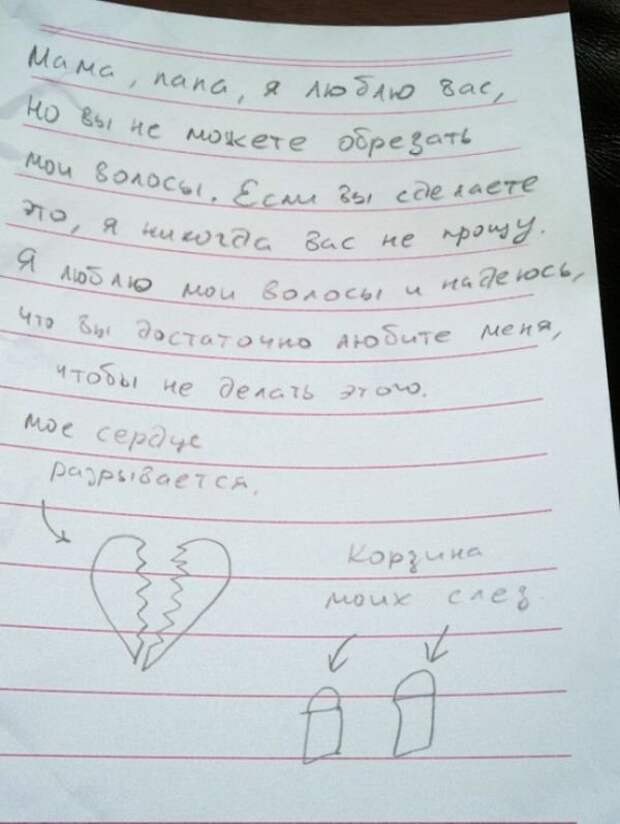 Мама, папа, я люблю вас,
но вы не можете обрезать
мои волосы. Если вы сделаете
это, я никогда вас не прощу.
Я люблю мои волосы и надеюсь,
что вы достаточно любите меня,
чтобы не делать этого.
мое сердце
разрывается.
Корзина
моих слез